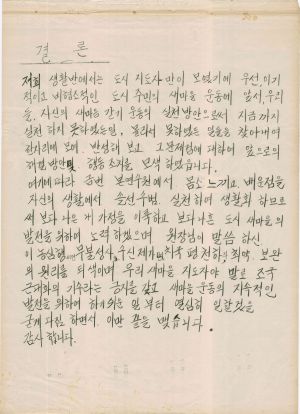 결 론
저희 생활반에서는 도시 지도자 만이 모였기에 우선, 이기
적이고 비협조적인 도시 주민의 새마을 운동에 앞서, 우리
들, 자신의 새마음 갖기 운동의 실천 방안으로써 지금까지
실천 하지 못하였든일, 몰라서 못하였든 일들을 찾아내여
한자리에 모여, 반성해 보고 그 문제점에 대하여 앞으로의
해결방안및 행동 조치를 모색 하였습니다.
여기에따라 금번 본연수원에서 몸소 느끼고, 배운점을
자신의 생활에서 솔선수범, 실천 하여 생활화 하므로
써 보다 나은 제 가정을 이룩하고 보다나은 도시 새마을의
발전을 위하여 노력 하겠으며 원장님이 말씀 하신
수신제가
원리를 되색이며 우리 새마을 지도자야 말로 조국
근대화의 기수라는 긍지를 갖고 새마을 운동의 지속적인
발전을 위하여 하기쉬운 일 부터 열심히 일할것을
굳게 다짐 하면서, 이만 끝을 맺습니다.
감사 합니다.